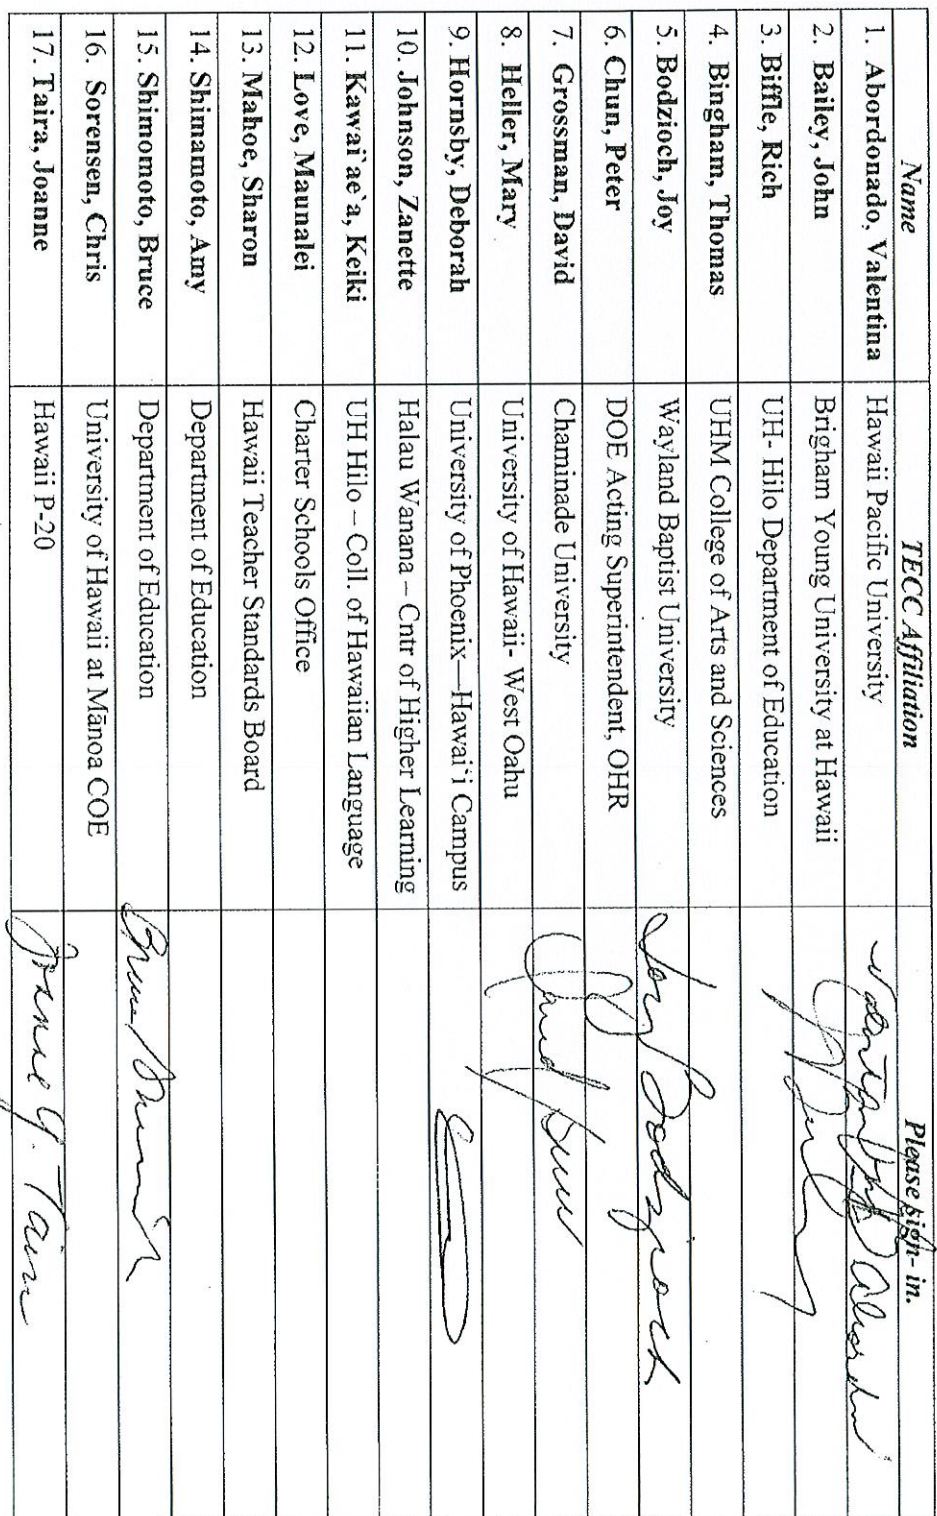 Name TECC Affiliation Please sign- in.
1. Abordonado, Valentina Hawaii Pacific University
2. Bailey, John Brigham Young University at Hawaii
3. Biffle, Rich UH- Hilo Department of Education
4. Bingham, Thomas UHM College of Arts and Sciences
5. Bodzioch, Joy Wayland Baptist University Joy Bodzioch
6. Chun, Peter DOE Acting Superintendent, OHR
7. Grossman, David Chaminade University David
8. Heller, Mary University of Hawaii- West Oahu
9. Hornsby, Deborah University of Phoenix—Hawai`i Campus
10. Johnson, Zanette Halau Wanana – Cntr of Higher Learning
11. Kawai`ae`a, Keiki UH Hilo – Coll. of Hawaiian Language
12. Love, Maunalei Charter Schools Office
13. Mahoe, Sharon Hawaii Teacher Standards Board
14. Shimamoto, Amy Department of Education
15. Shimomoto, Bruce Department of Education
16. Sorensen, Chris University of Hawaii at Mānoa COE
17. Taira, Joanne Hawaii P-20 Joanne Y. Taira